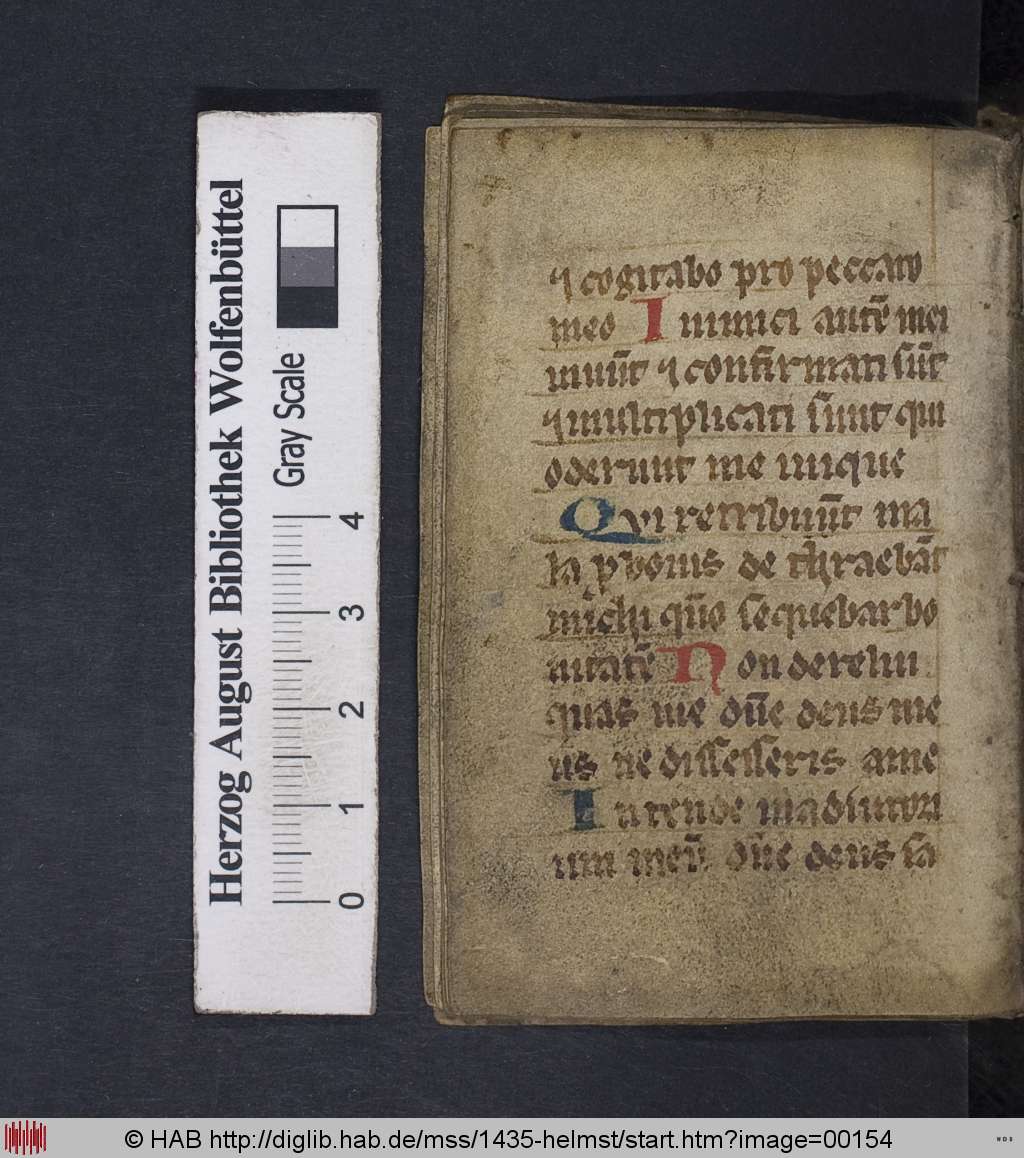 Herzog August Bibliothek Wolfenbüttel
Gray Scale
0 1 2 3 4
⁊ cogitabo pro peccato
meo Inimici autē mei
uiuūt ⁊ confirmati sūt
⁊ multiplicati sunt qui
oderunt me inique
Qui retribuūt ma
la ꝓ bonis de threaebāt
michi qm̄o sequebar bo
nitatē Non derelin
quas me dn̄e deus me
us ne discesseris a me
Intende in adiutori
um meū dn̄e deus sa
© HAB http://diglib.hab.de/mss/1435-helmst/start.htm?image=00154